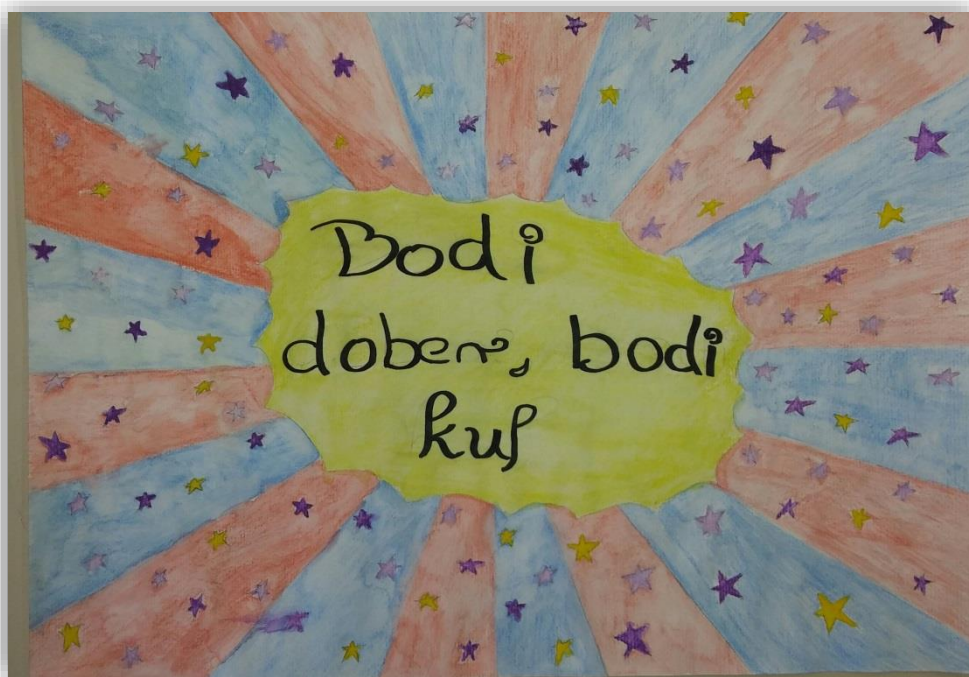 Bodi
dober, bodi
kul